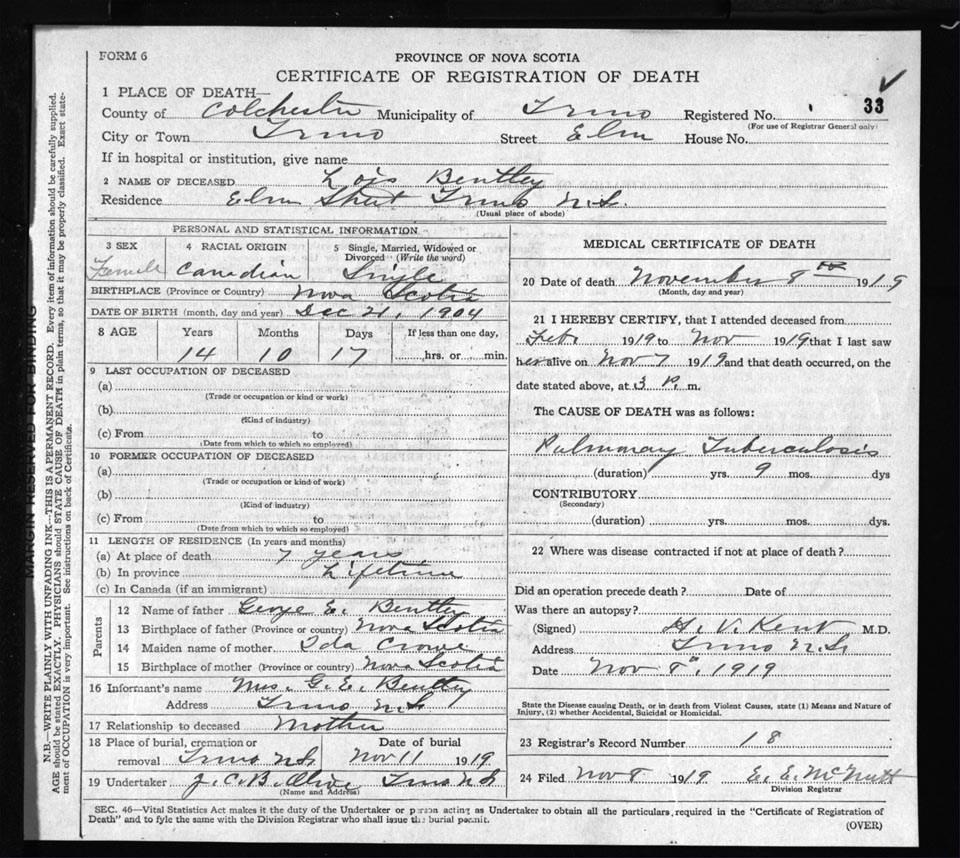 FORM 6
PROVINCE OF NOVA SCOTIA
CERTIFICATE OF REGISTRATION OF DEATH
1 PLACE OF DEATH—
County of Colchester Municipality of Truro Registered No. 33
(For use of Registrar General only)
City or Town Truro Street Elm House No.
If in hospital or institution, give name
2 NAME OF DECEASED Lois Bentley
Residence Elm Street Truro N.S.
(Usual place of abode)
PERSONAL AND STATISTICAL INFORMATION
3 SEX 4 RACIAL ORIGIN 5 Single, Married, Widowed or Divorced (Write the word)
Female Canadian Single
BIRTHPLACE (Province or Country) Nova Scotia
DATE OF BIRTH (month, day and year) Dec 21, 1904
8 AGE Years Months Days If less than one day,
14 10 17 hrs. or min.
9 LAST OCCUPATION OF DECEASED
(a)
(Trade or occupation or kind or work)
(b)
(Kind of industry)
(c) From to
(Date from which to which so employed)
10 FORMER OCCUPATION OF DECEASED
(a)
(Trade or occupation or kind of work)
(b)
(Kind of industry)
(c) From to
(Date from which to which so employed)
11 LENGTH OF RESIDENCE (In years and months)
(a) At place of death 7 years
(b) In province Lifetime
(c) In Canada (if an immigrant)
Parents
12 Name of father George E. Bentley
13 Birthplace of father (Province or country) Nova Scotia
14 Maiden name of mother Ida Crowe
15 Birthplace of mother (Province or country) Nova Scotia
16 Informant's name Mrs. G. E. Bentley
Address Truro N.S.
17 Relationship to deceased Mother
18 Place of burial, cremation or removal Truro N.S. Date of burial Nov 11 1919
19 Undertaker J. C. B. Olive Truro N.S.
(Name and Address)
MEDICAL CERTIFICATE OF DEATH
20 Date of death November 8th 1919
(Month, day and year)
21 I HEREBY CERTIFY, that I attended deceased from
Feb 1919 to Nov 1919 that I last saw
her alive on Nov 7 1919 and that death occurred, on the
date stated above, at 3 P. m.
The CAUSE OF DEATH was as follows:
Pulmonary Tuberculosis
(duration) yrs. 9 mos. dys
CONTRIBUTORY
(Secondary)
(duration) yrs. mos. dys.
22 Where was disease contracted if not at place of death?
Did an operation precede death? Date of
Was there an autopsy?
(Signed) H. V. Kent M.D.
Address Truro N.S.
Date Nov 8th, 1919
State the Disease causing Death, or in death from Violent Causes, state (1) Means and Nature of
Injury, (2) whether Accidental, Suicidal or Homicidal.
23 Registrar's Record Number 18
24 Filed Nov 8 1919 E. E. McNutt
Division Registrar
SEC. 46—Vital Statistics Act makes it the duty of the Undertaker or person acting as Undertaker to obtain all the particulars, required in the "Certificate of Registration of
Death" and to fyle the same with the Division Registrar who shall issue the burial permit.
(OVER)
MARGIN RESERVED FOR BINDING
N.B.—WRITE PLAINLY WITH UNFADING INK—THIS IS A PERMANENT RECORD. Every item of information should be carefully supplied.
AGE should be stated EXACTLY. PHYSICIANS should STATE CAUSE OF DEATH in plain terms, so that it may be properly classified. Exact state-
ment of OCCUPATION is very important. See instructions on back of Certificate.